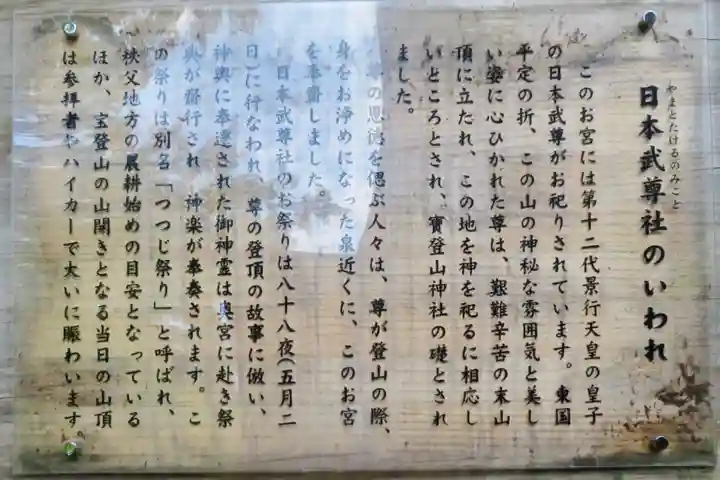 やまとたけるのみこと
日本武尊社のいわれ
このお宮には第十二代景行天皇の皇子
の日本武尊がお祀りされています。東国
平定の折、この山の神秘な雰囲気と美し
い姿に心ひかれた尊は、艱難辛苦の末山
頂に立たれ、この地を神を祀るに相応し
いところとされ、寳登山神社の礎とされ
ました。
尊の恩徳を偲ぶ人々は、尊が登山の際、
身をお浄めになった泉近くに、このお宮
を奉齋しました。
日本武尊社のお祭りは八十八夜(五月二
日)に行なわれ、尊の登頂の故事に倣い、
神輿に奉遷された御神霊は奥宮に赴き祭
典が齋行され、神楽が奉奏されます。こ
の祭りは別名「つつじ祭り」と呼ばれ、
秩父地方の農耕始めの目安となっている
ほか、宝登山の山開きとなる当日の山頂
は参拝者やハイカーで大いに賑わいます。